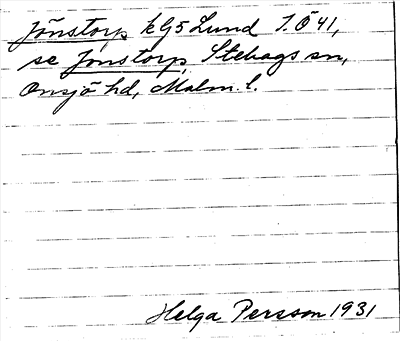 Jönstorp kG5 Lund 1. Ö 41,
se Jonstorp, Stehags sn,
Onsjö hd, Malm. l.
Helga Persson 1931